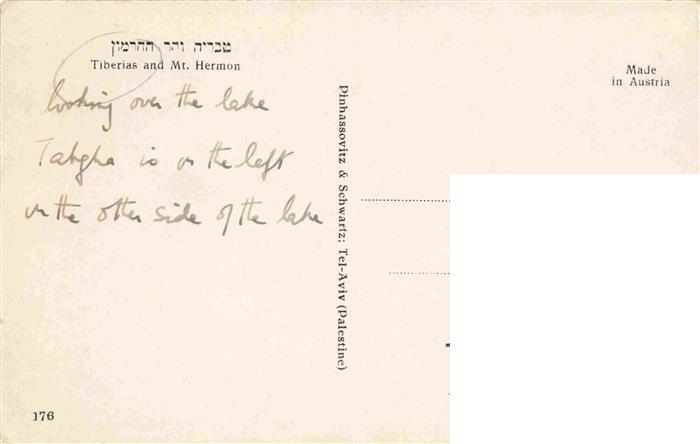 טבריה והר החרמון
Tiberias and Mt. Hermon
looking over the lake
Tabgha is on the left
on the other side of the lake
176
Pinhassovitz & Schwartz; Tel-Aviv (Palestine)
Made
in Austria